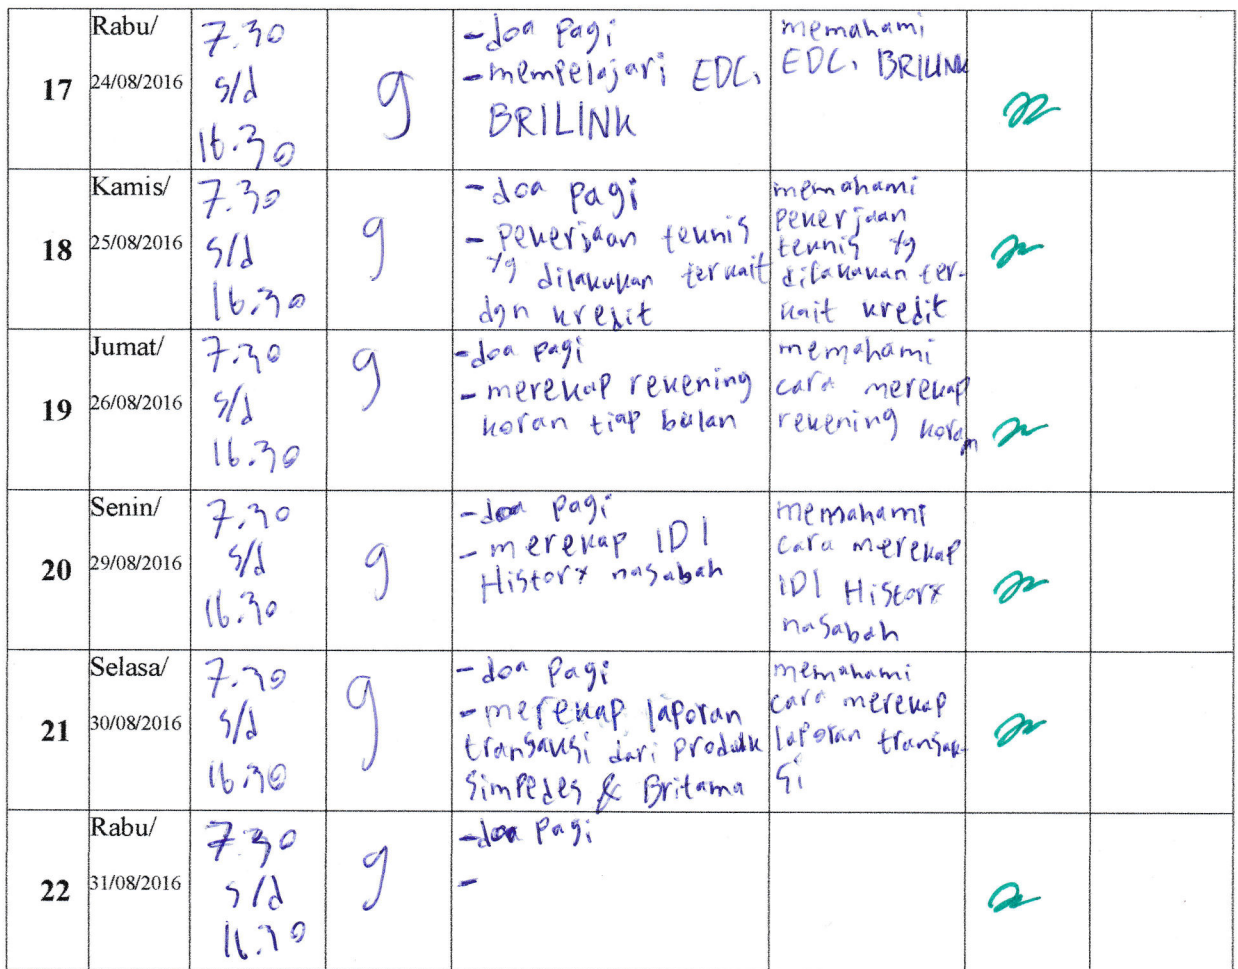 17
Rabu/
24/08/2016
7.30
s/d
16.30
9
- doa pagi
- mempelajari EDC,
BRILINK
memahami
EDC, BRILINK
18
Kamis/
25/08/2016
7.30
s/d
16.30
9
- doa pagi
- pekerjaan teknis
yg dilakukan terkait
dgn kredit
memahami
pekerjaan
teknis yg
dilakukan ter-
kait kredit
19
Jumat/
26/08/2016
7.30
s/d
16.30
9
- doa pagi
- merekap rekening
koran tiap bulan
memahami
cara merekap
rekening koran
20
Senin/
29/08/2016
7.30
s/d
16.30
9
- doa pagi
- merekap IDI
History nasabah
memahami
cara merekap
IDI History
nasabah
21
Selasa/
30/08/2016
7.30
s/d
16.30
9
- doa pagi
- merekap laporan
transaksi dari produk
Simpedes & Britama
memahami
cara merekap
laporan transak-
si
22
Rabu/
31/08/2016
7.30
s/d
16.30
9
- doa pagi
-